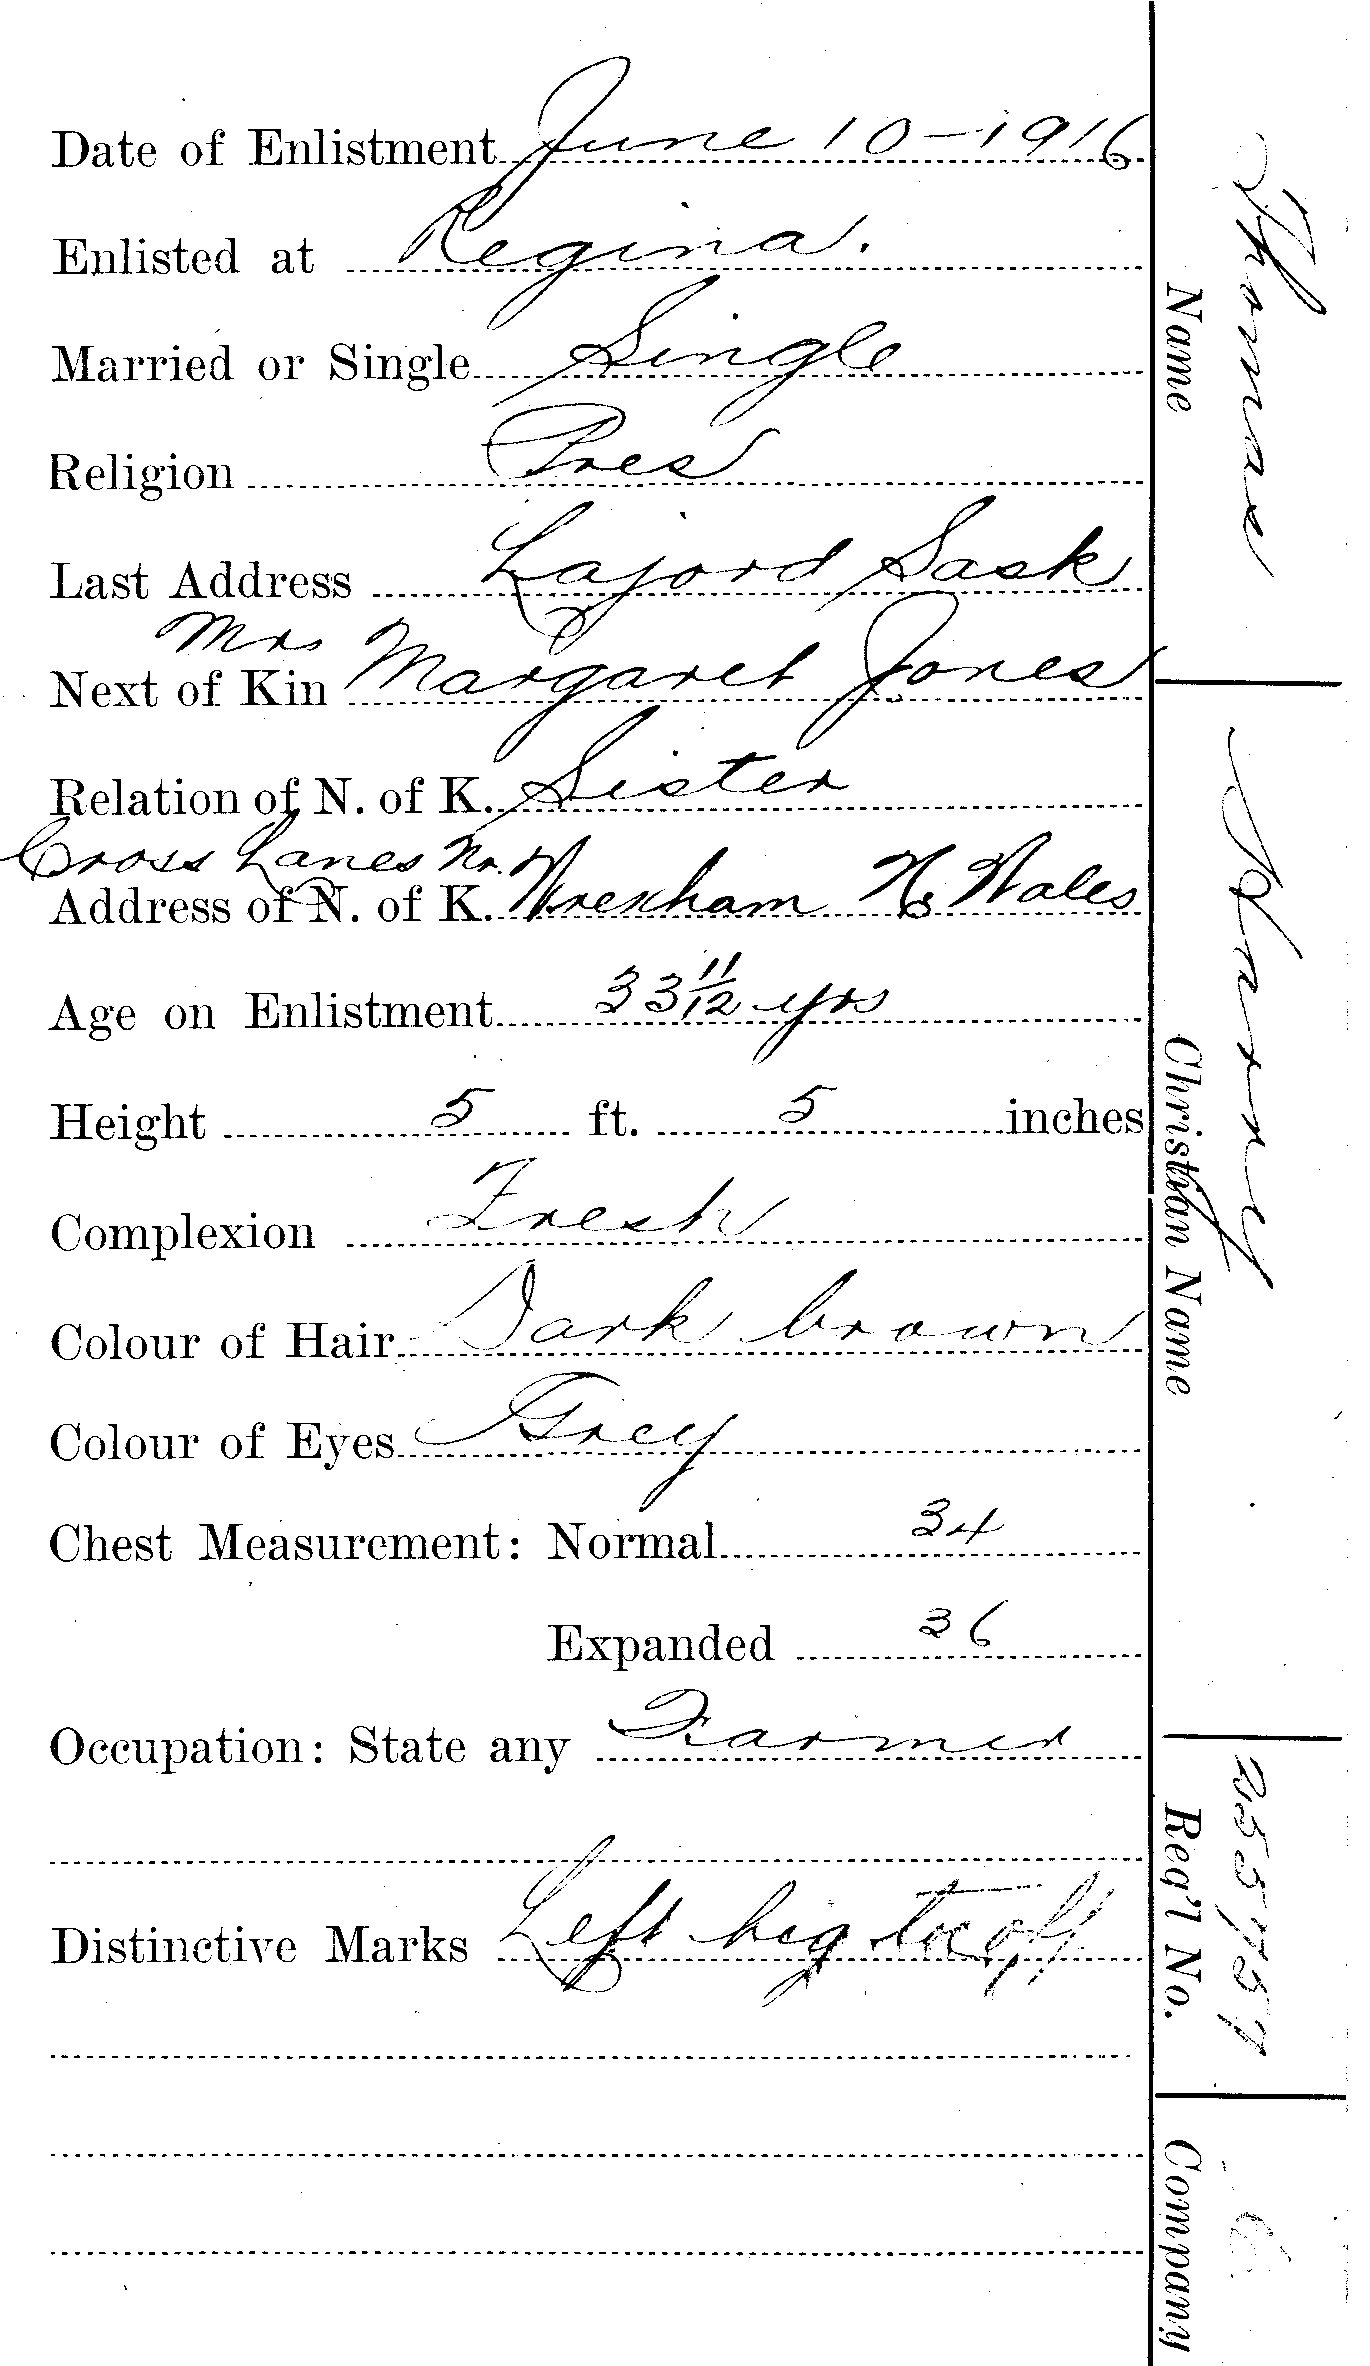 Date of Enlistment June 10-1916
Enlisted at Regina.
Married or Single Single
Religion Pres
Last Address Lajord Sask
Mrs
Next of Kin Margaret Jones
Relation of N. of K. Sister
Cross Lanes Nr.
Address of N. of K. Wrexham N. Wales
Age on Enlistment 33 11/12 yrs
Height 5 ft. 5 inches
Complexion Fresh
Colour of Hair Dark brown
Colour of Eyes Grey
Chest Measurement: Normal 34
Expanded 36
Occupation: State any Farmer
Distinctive Marks Left big toe off
Name Thomas
Christian Name Henry
Reg'l No. 255757
Company